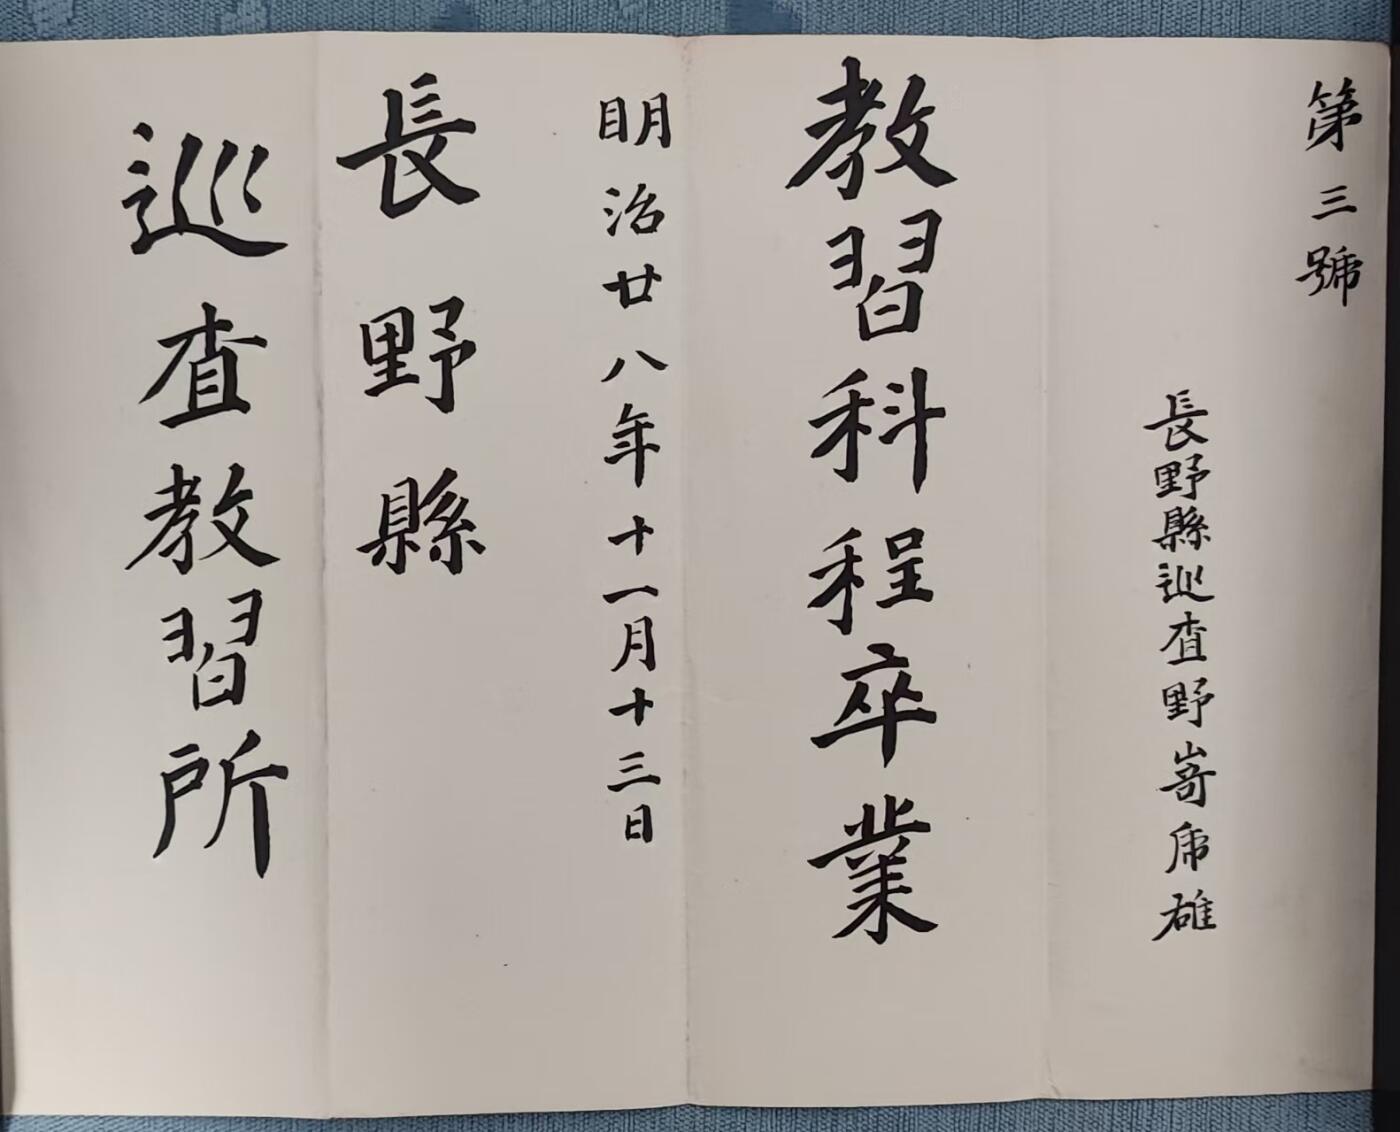 第三號
長野縣巡査野嵜虎雄
教習科程卒業
明治廿八年十一月十三日
長野縣
巡査教習所